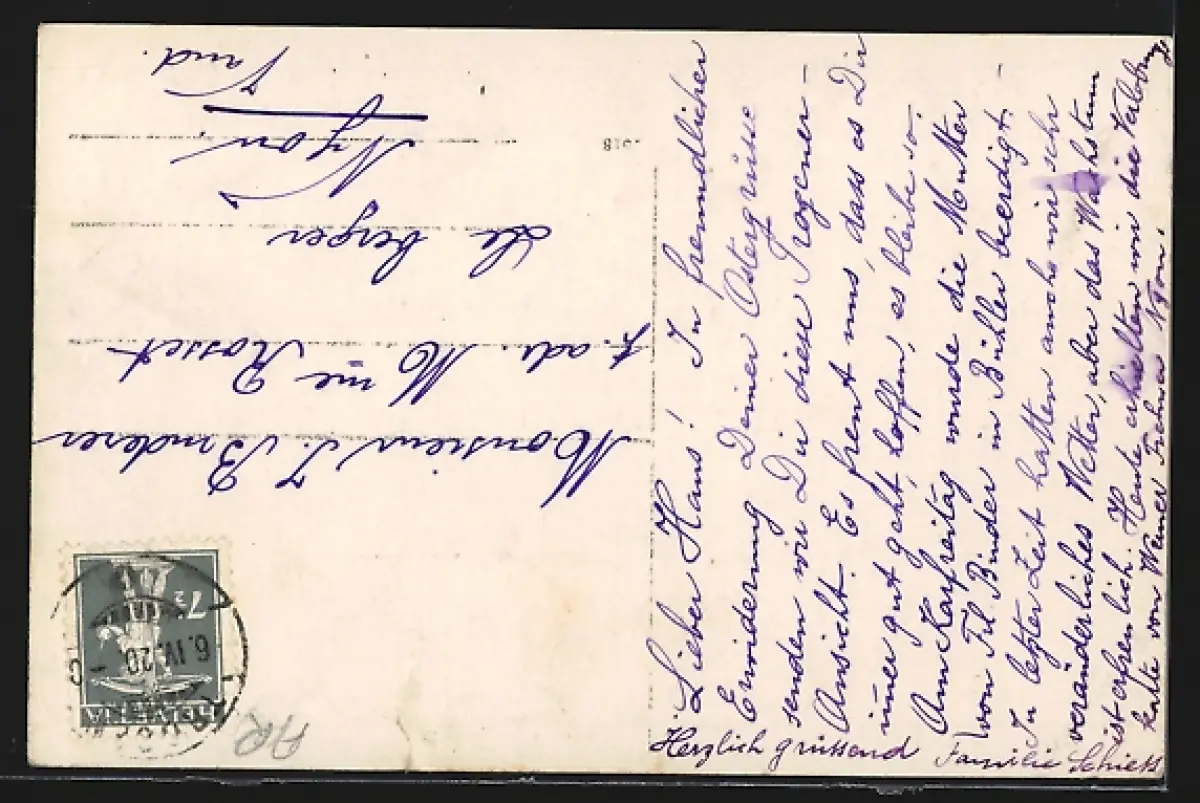 Lieber Hans! In freundlicher
Erwiderung Deiner Ostergrüsse
senden wir Dir diese Trogener-
Ansicht. Es freut uns, dass es Dir
immer gut geht, hoffen, es bleibe so.
Am Karfreitag wurde die Mutter
von Frl. Binder in Bühler beerdigt. -
In letzter Zeit hatten auch wir sehr
veränderliches Wetter, aber das Wachstum
ist erfreulich. Heute erhielten wir die Verlobungs
karte von Werner Nyon.
Herzlich grüssend Familie Schiess
Monsieur J. Bruderer
p. adr. Mme Rosset
Le berger
Nyon,
Vaud.
HELVETIA
7½
6.IV.20
AR